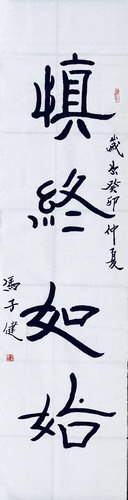 慎終如始
歲在癸卯仲夏
馮子健